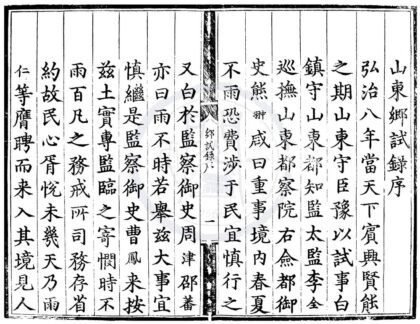 山東鄉試錄序
弘治八年當天下賓興賢能
之期山東守臣豫以試事白
鎮守山東都知監太監李全
巡撫山東都察院右僉都御
史熊翀咸曰重事境內春夏
不雨恐費涉于民宜慎行之
鄉試錄序
一
又白於監察御史周津邵蕃
亦曰雨不時若舉茲大事宜
慎繼是監察御史曹鳳来按
茲土實專監臨之寄憫時不
雨百凡之務戒所司務存省
約故民心胥悅未幾天乃雨
仁等膺聘而来入其境見人